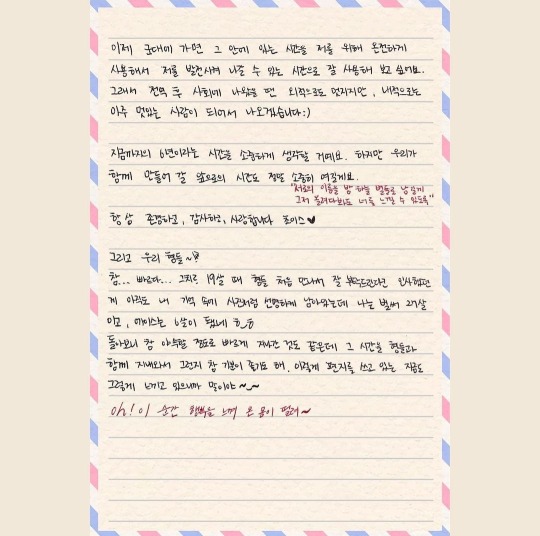 이제 군대에 가면 그 안에 있는 시간을 저를 위해 온전하게
사용해서 저를 발전시켜 나갈 수 있는 시간으로 잘 사용해 보고 싶어요.
그래서 전역 후 사회에 나왔을 땐 외적으로도 멋지지만, 내적으로도
아주 멋있는 사람이 되어서 나오겠습니다:)
지금까지의 6년이라는 시간을 소중하게 생각할 거예요. 하지만 우리가
함께 만들어 갈 앞으로의 시간도 정말 소중히 여길게요.
"서로의 이름을 밤 하늘 별들로 남길게
그저 올려다봐도 너를 느낄 수 있도록"
항상 존경하고, 감사하고, 사랑합니다 초이스♥
그리고 우리 형들~?
참... 빠르다... 그치로 19살 때 형들 처음 만나서 잘 부탁드린다고 인사했던
게 아직도 내 기억 속에 사진처럼 선명하게 남아있는데 나는 벌써 27살
이고, 에이스는 6살이 됐네
돌아보니 참 야속할 정도로 빠르게 지나간 것도 같은데 그 시간을 형들과
함께 지내와서 그런지 참 기분이 좋기도 해. 이렇게 편지를 쓰고 있는 지금도
그렇게 느끼고 있으니까 말이야~_~
oh! 이 순간 행복을 느껴 온 몸이 떨려~